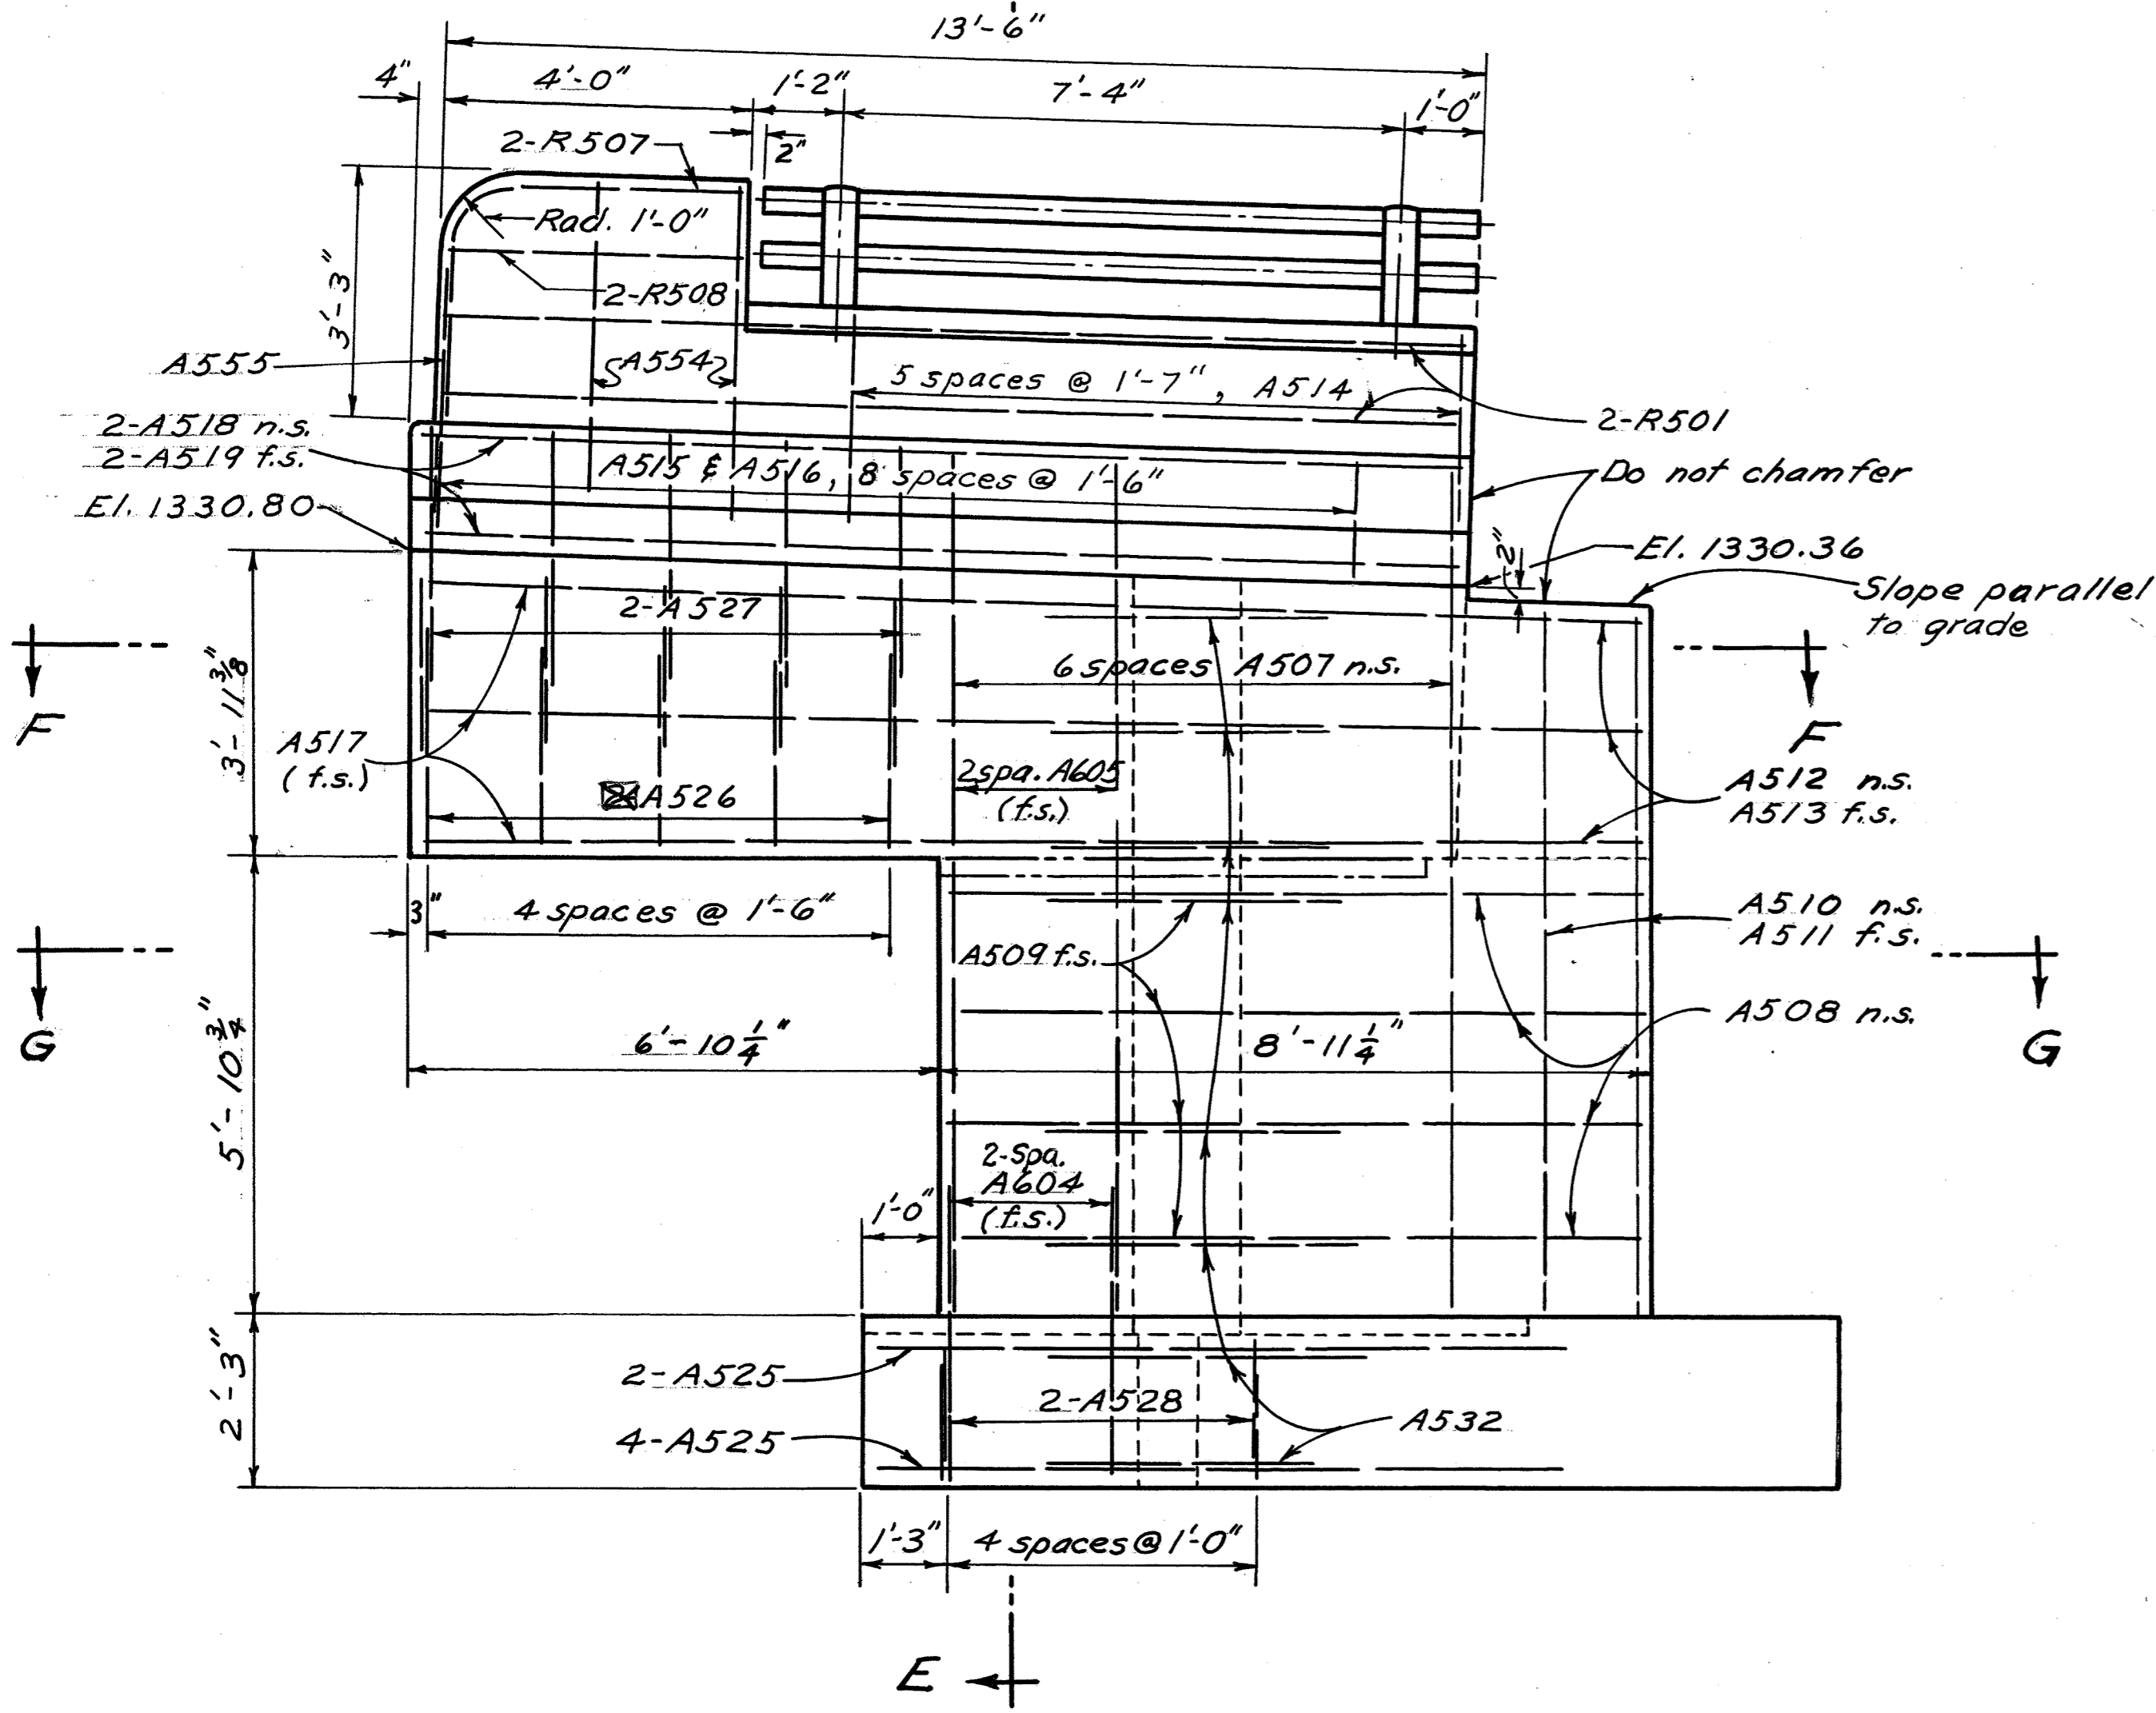 13'-6"
4"
4'-0"
1'-2"
7'-4"
1'-0"
2-R507
2"
Rad. 1'-0"
3'-3"
2-R508
A555
A554
5 spaces @ 1'-7", A514
2-R501
2-A518 n.s.
2-A519 f.s.
A515 & A516, 8 spaces @ 1'-6"
Do not chamfer
El. 1330.80
2"
El. 1330.36
Slope parallel
to grade
2-A527
6 spaces A507 n.s.
F
F
3'-11 3/8"
A517
(f.s.)
2 spa. A605
(f.s.)
A512 n.s.
A513 f.s.
A526
3"
4 spaces @ 1'-6"
A510 n.s.
A511 f.s.
A509 f.s.
A508 n.s.
G
G
5'-10 3/4"
6'-10 1/4"
8'-11 1/4"
2-Spa.
A604
(f.s.)
1'-0"
2'-3"
2-A525
2-A528
A532
4-A525
1'-3"
4 spaces @ 1'-0"
E